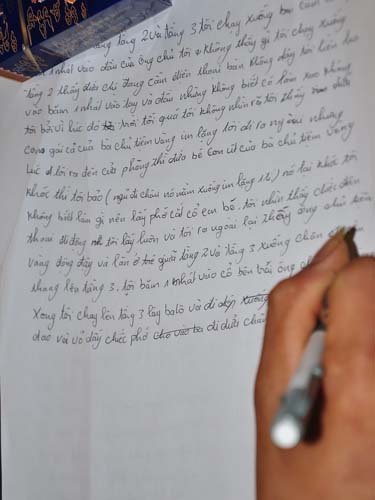 tầng 2 và tầng 3 tôi chạy xuống
1 nhát vào đầu của ông chủ tôi không thấy gì tôi chạy xuống
tầng 2 thấy chị đang cầm điện thoại bàn không dây tôi liền lao
vào băm 1 nhát vào tay và đầu nhưng không biết có làm sao không
tôi bởi vì lúc đó trời tối quá tôi không nhìn rõ tôi thấy đứa
con gái cả của bà chủ tiệm vàng im lặng tôi đi ra ngoài nhưng
lúc đi tôi ra đến cửa phòng thì đứa bé con út của bà chủ tiệm vàng
khóc thì tôi bảo (ngủ đi cháu nó nằm xuống im lặng 1 lúc) nó lại khóc tôi
không biết làm gì nên lấy phớ cắt cổ em bé. tôi nhìn thấy chiếc điện
thoại di động tôi lấy luôn và tôi ra ngoài lại thấy ông chủ tiệm
vàng đứng dậy và lăn ở giữa tầng 2 và tầng 3 xuống chân
nhưng lên tầng 3. tôi băm 1 nhát vào cổ bên trái ông
Xong tôi chạy lên tầng 3 lấy balô và đi dép xuống
dao và vỏ đấy chiếc phớ cho vào ba đi dưới chân